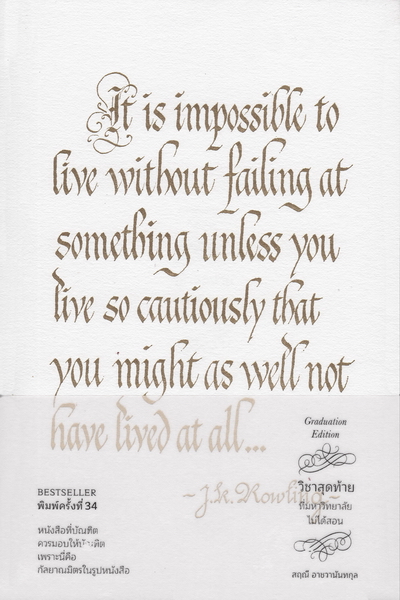 It is impossible to
live without failing at
something unless you
live so cautiously that
you might as well not
have lived at all...
~J.K. Rowling~
Graduation
Edition
วิชาสุดท้าย
ที่มหาวิทยาลัย
ไม่ได้สอน
สฤณี อาชวานันทกุล
BESTSELLER
พิมพ์ครั้งที่ 34
หนังสือที่บัณฑิต
ควรมอบให้บัณฑิต
เพราะนี่คือ
กัลยาณมิตรในรูปหนังสือ